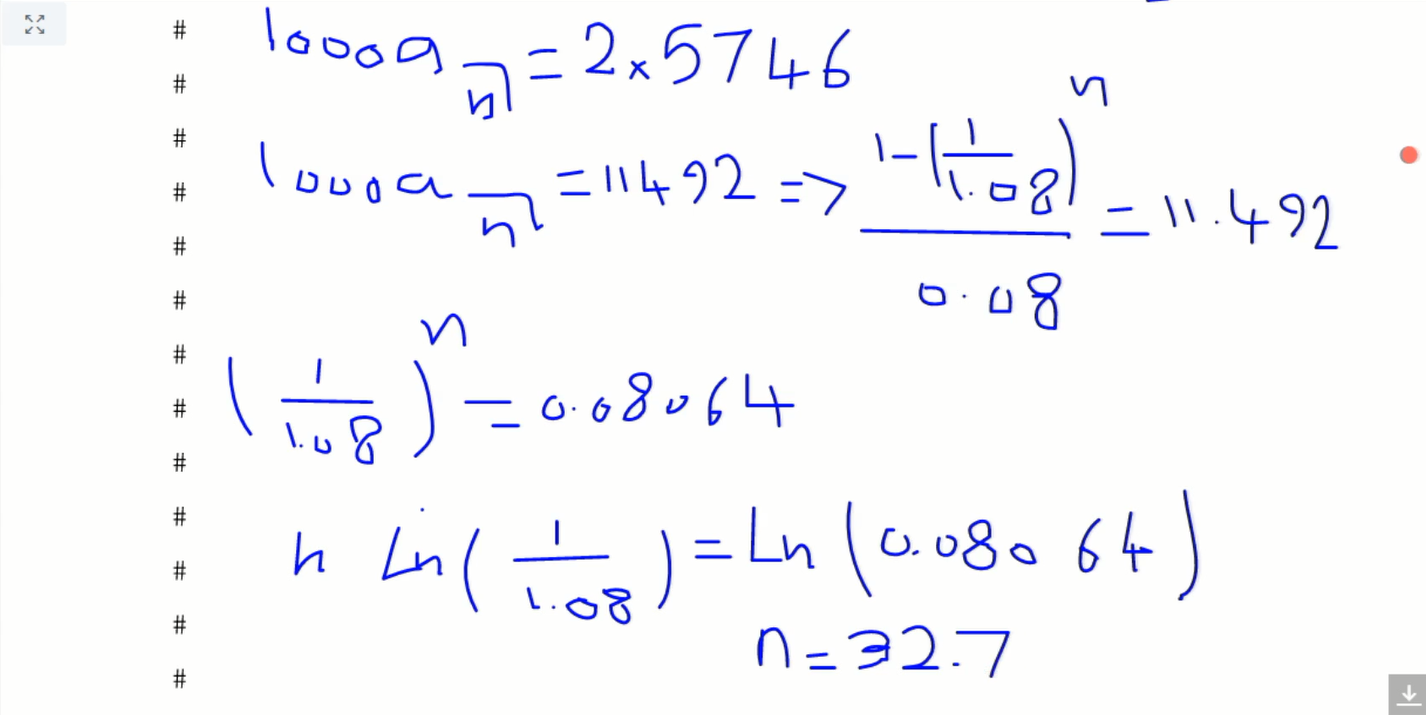 #
1000a n̅| = 2×5746
#
#
1000a n̅| = 11492 => (1-(1/1.08)^n)/0.08 = 11.492
#
#
#
#
(1/1.08)^n = 0.08064
#
#
#
n Ln(1/1.08) = Ln(0.08064)
#
#
n = 32.7
#